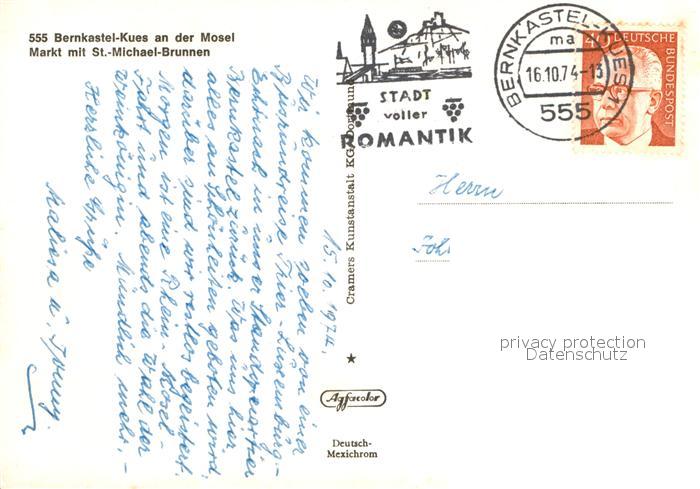 555 Bernkastel-Kues an der Mosel
Markt mit St.-Michael-Brunnen
15.10.1974.
Wir kommen soeben von einer
Trier-Luxemburg-
Echternach in unser Standquartier
Bernkastel zurück. Was uns hier
alles an Schönheiten geboten wird,
darüber sind wir restlos begeistert.
Morgen ist eine Rhein-Mosel-
Fahrt und abends die Wahl der
Weinkönigin. Mündlich mehr.-
Herzliche Grüße
u.
Cramers Kunstanstalt KG, Dortmund
Agfacolor
Deutsch-
Mexichrom
STADT
voller
ROMANTIK
BERNKASTEL-KUES 1
ma
16.10.74-13
555
DEUTSCHE
BUNDESPOST
Herrn
Joh
privacy protection
Datenschutz